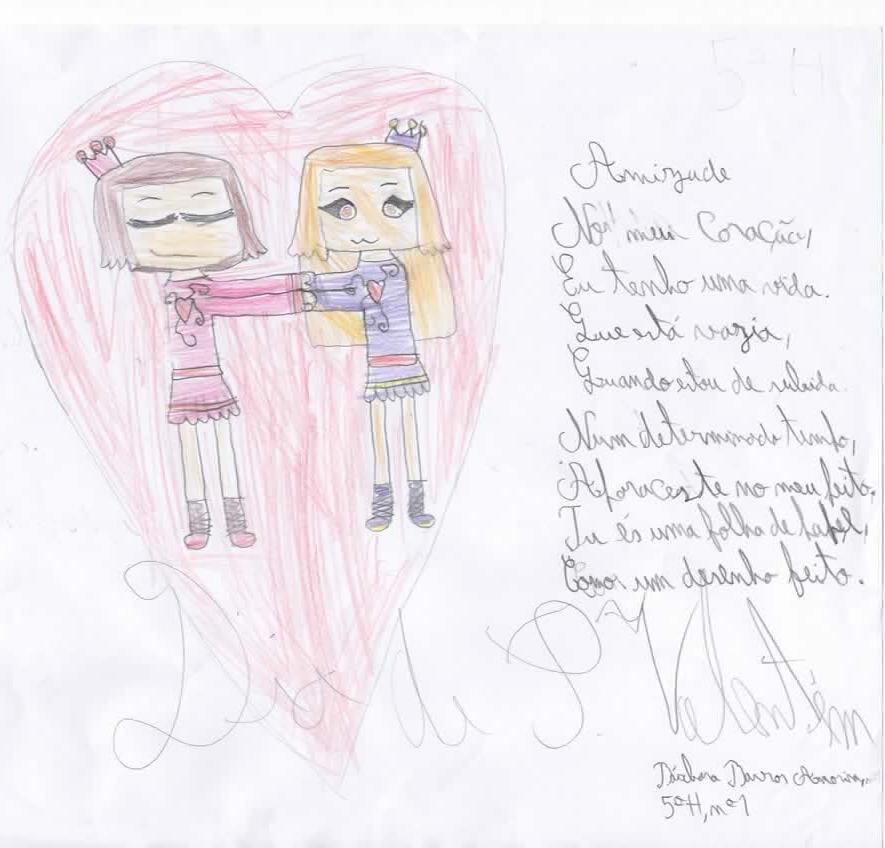 5ª H
Amizade
No meu Coração,
Eu tenho uma vida.
Que está vazia,
Quando estou de saída.
Num determinado tempo,
Aforaceste no meu peito.
Tu és uma folha de papel,
Como um desenho feito.
Dia de S. Valentim
Bárbara Barros Amorim,
5ºH, nº1